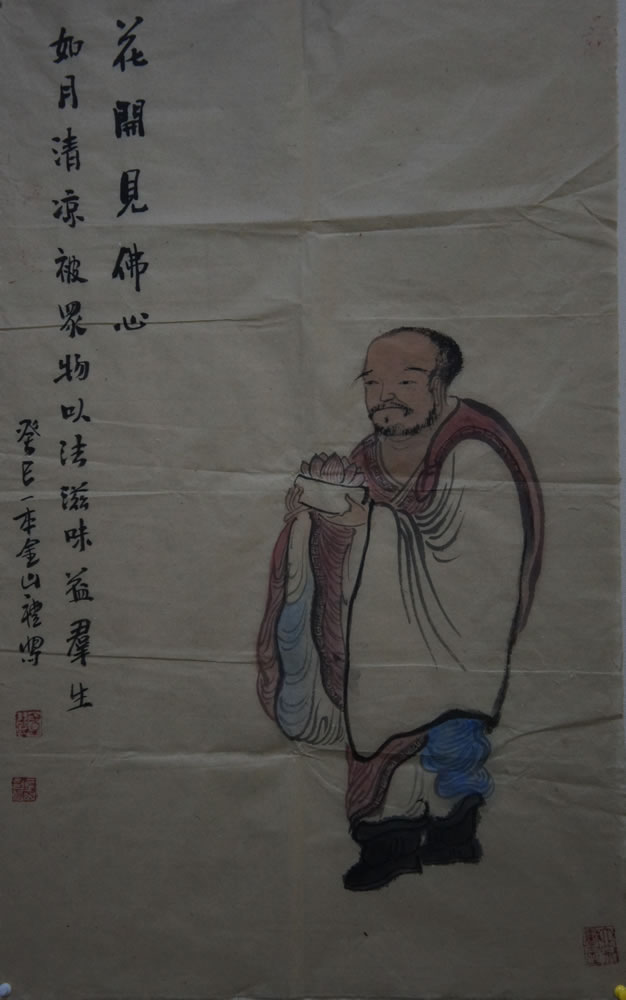 花開見佛心
如月清凉被眾物以法滋味益羣生
癸巳一本金山禮